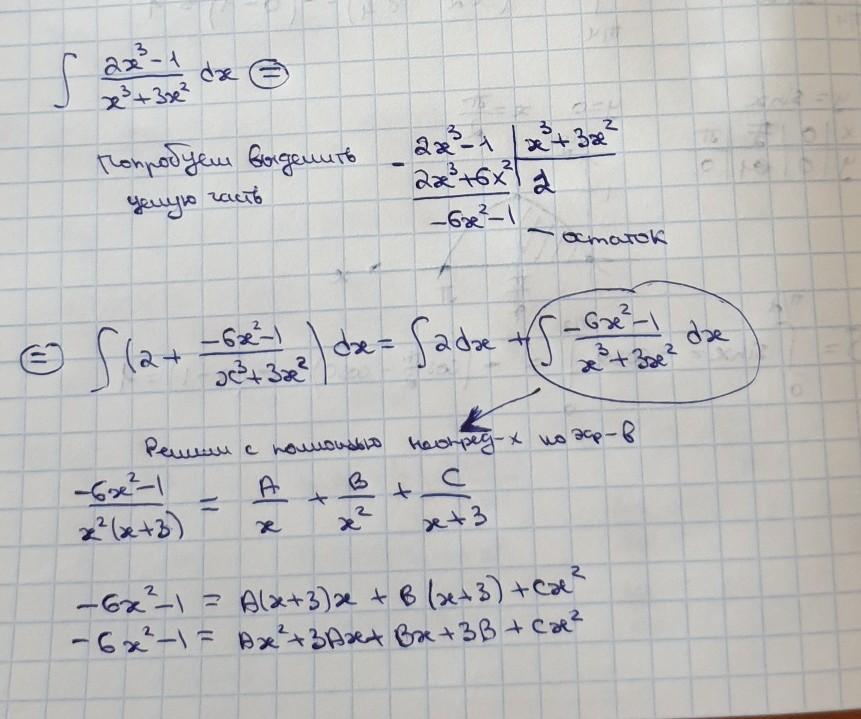 ∫ (2x³-1)/(x³+3x²) dx =
Попробуем выделить
целую часть
2x³-1 | x³+3x²
- 2x³+6x² | 2
-6x²-1 — остаток
= ∫(2 + (-6x²-1)/(x³+3x²)) dx = ∫2dx + ∫ (-6x²-1)/(x³+3x²) dx
Решим с помощью неопред-х коэф-в
(-6x²-1)/(x²(x+3)) = A/x + B/x² + C/(x+3)
-6x²-1 = A(x+3)x + B(x+3) + Cx²
-6x²-1 = Ax²+3Ax+Bx+3B+Cx²